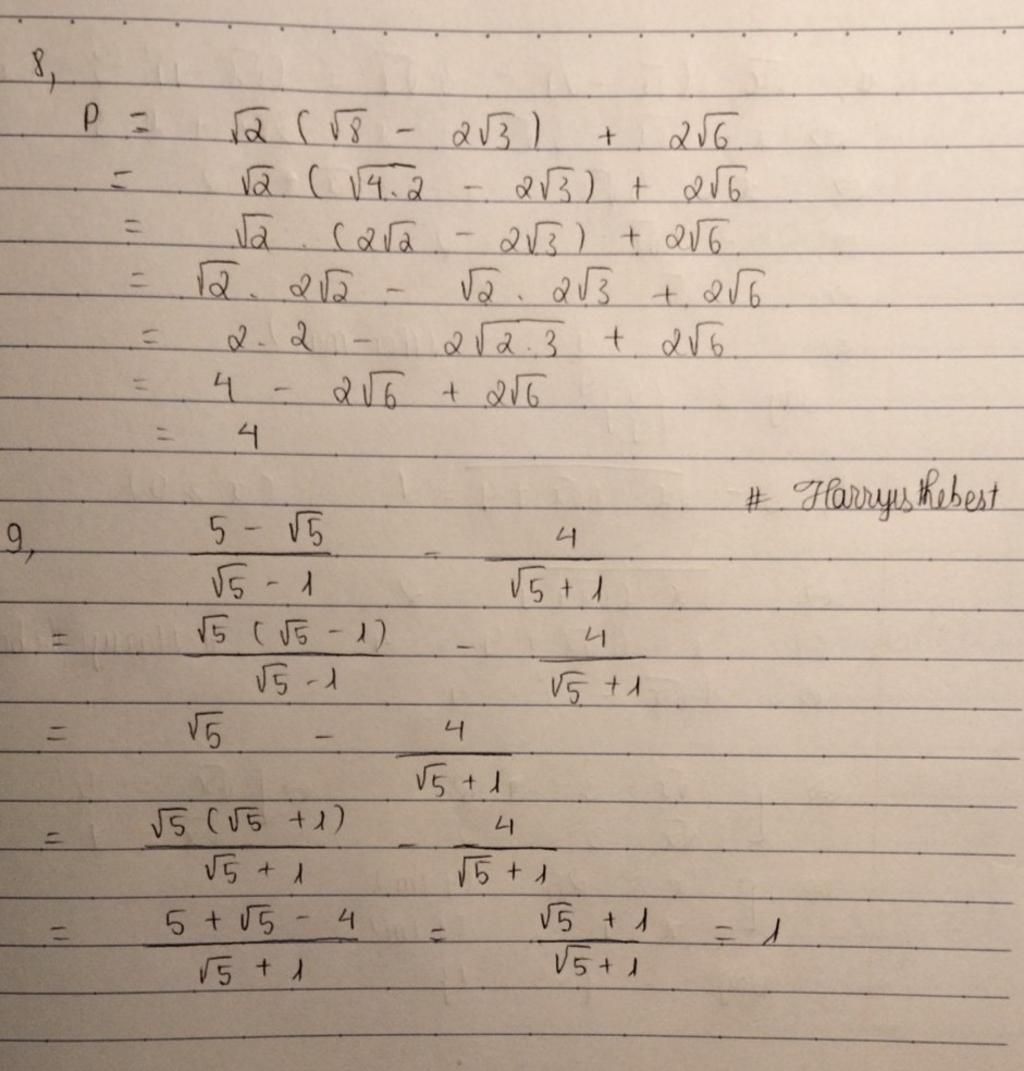 8,
P = √2 ( √8 - 2√3 ) + 2√6
= √2 ( √4.2 - 2√3 ) + 2√6
= √2 . (2√2 - 2√3 ) + 2√6
= √2 . 2√2 - √2 . 2√3 + 2√6
= 2. 2 - 2√2.3 + 2√6
= 4 - 2√6 + 2√6
= 4
# Harryisthebest
9, (5 - √5)/(√5 - 1) - 4/(√5 + 1)
= (√5 (√5 - 1))/(√5 - 1) - 4/(√5 + 1)
= √5 - 4/(√5 + 1)
= (√5 (√5 + 1))/(√5 + 1) - 4/(√5 + 1)
= (5 + √5 - 4)/(√5 + 1) = (√5 + 1)/(√5 + 1) = 1